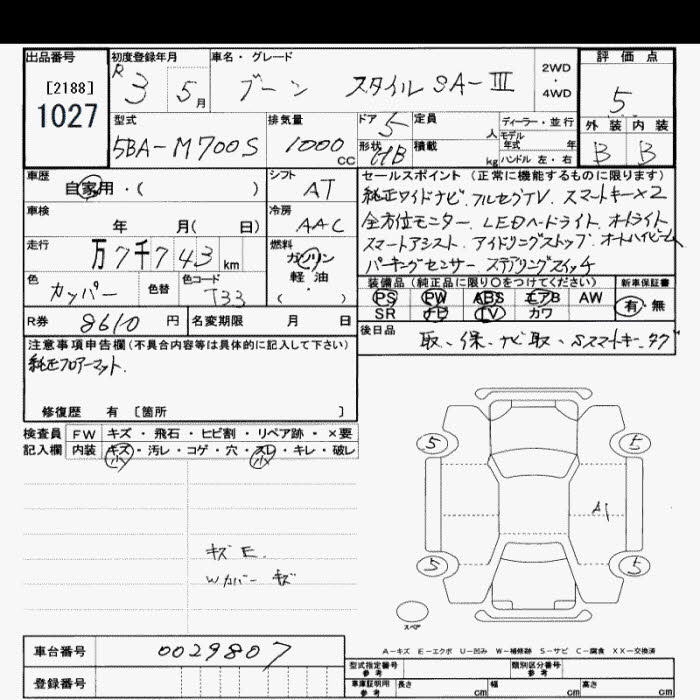 出品番号 初度登録年月 車名・グレード 評価点
[2188] R 3 5月 ブーン スタイル SA-III 2WD・4WD 5
1027
型式 排気量 ドア 5 定員 人 ディーラー・並行 外装 内装
5BA-M700S 1000 CC 形状 HB 積載 kg モデル年式 年 B B
ハンドル 左・右
車歴 自家用・( ) シフト AT セールスポイント(正常に機能するものに限ります)
純正ワイドナビ、フルセグTV、スマートキー×2
車検 年 月( 日) 冷房 AAC 全方位モニター、LEDヘッドライト、オートライト
走行 万7千743km 燃料 ガソリン スマートアシスト、アイドリングストップ、オートハイビーム
軽油 ( ) パーキングセンサー ステアリングスイッチ
色 カッパー 色替 色コード T33 装備品(純正品に限り○をつけてください) 新車保証書
PS PW ABS エアB AW 有・無
SR ナビ TV カワ
R券 8610円 名変期限 月 日 後日品 取、保、ナビ取、Sスマートキー、タグ
注意事項申告欄(不具合内容等は具体的に記入して下さい)
純正フロアーマット
修復歴 有 [箇所 ]
検査員 FW キズ・飛石・ヒビ割・リペア跡・×要
記入欄 内装 キズ・汚レ・コゲ・穴・スレ・キレ・破レ
小 小
5 5
A1
キズ E
Wカバー キズ
5 5
スペア
車台番号 0029807 A-キズ E-エクボ U-凹み W-補修跡 S-サビ C-腐食 XX-交換済
型式指定番号 参考 類別区分番号 参考
登録番号 車庫証明用 参考 長さ cm 幅 cm 高さ cm